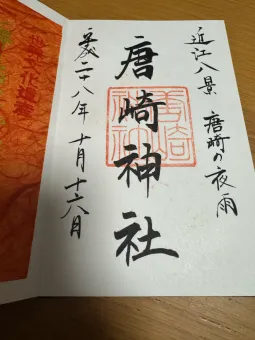 近江八景 唐崎の夜雨
唐崎神社
平成二十八年 十月十六日